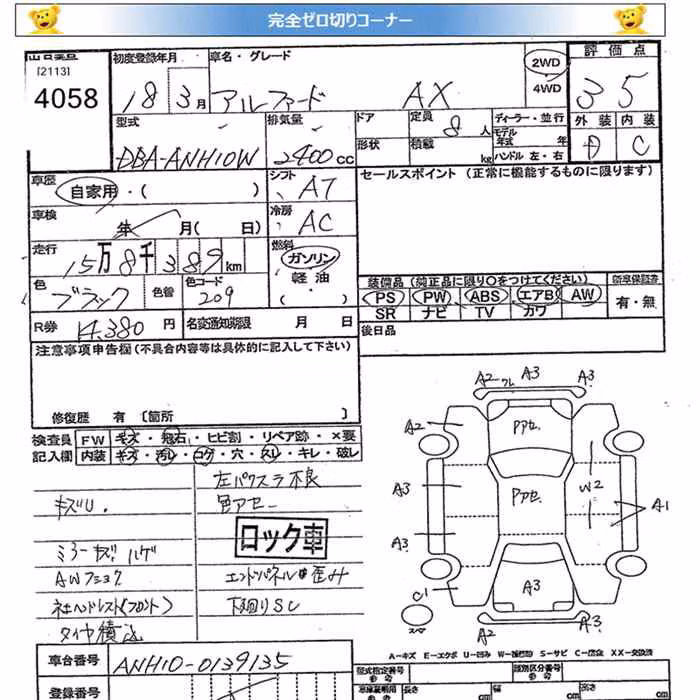 完全ゼロ切りコーナー
[2113]
4058
初度登録年月
18 3月
車名・グレード
アルファード AX
2WD
4WD
評価点
3 5
型式
DBA-ANH10W
排気量
2400 cc
ドア
形状
定員 8人
積載 kg
ディーラー・並行
モデル年式 年
ハンドル 左・右
外装 内装
D C
車歴
自家用・( )
シフト
AT
セールスポイント (正常に機能するものに限ります)
車検
年 月( 日)
冷房
AC
走行
15万8千389km
燃料
ガソリン
軽油
・( )
色
ブラック
色替
色コード
209
装備品 (純正品に限り○をつけてください)
新車保証書
PS PW ABS エアB AW
SR ナビ TV カワ
有・無
R券 14,380円
名変通知期限 月 日
後日品
注意事項申告欄 (不具合内容等は具体的に記入して下さい)
修復歴 有 [箇所 ]
検査員
記入欄
FW キズ・飛石・ヒビ割・リペア跡・×要
内装 キズ・汚レ・コゲ・穴・スレ・キレ・破レ
左パワスラ不良
キズU.
色アセー
ロック車
ミラーキズ ハゲ
AWフショク
エンドパネル歪み
社ヘッドレスト(フロント)
下廻りSC
タイヤ積込
車台番号 ANH10-0139135
登録番号
A2 ワレ A3 A3
A2
Pアセ
A3
Pアセ
W2
A1
A3
C1
A3
スペア
A2
A3
A-キズ E-エクボ U-凹み W-補修跡 S-サビ C-腐食 XX-交換済
型式指定番号
類別区分番号
長さ cm
幅 cm
高さ cm